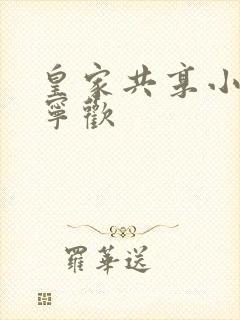 皇家共享小
寧歡
羅華送